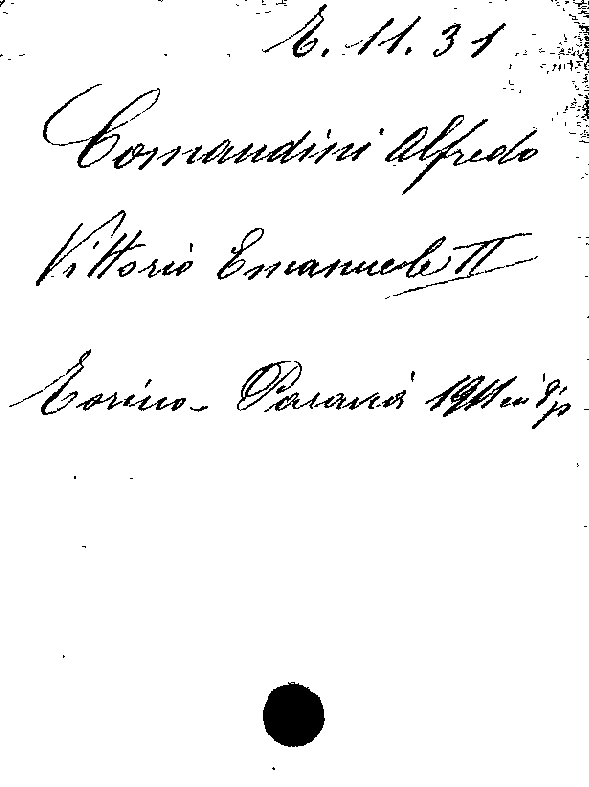 E. 11. 31
Comandini Alfredo
Vittorio Emanuele II
Torino - Paravia 1911 in 8° p